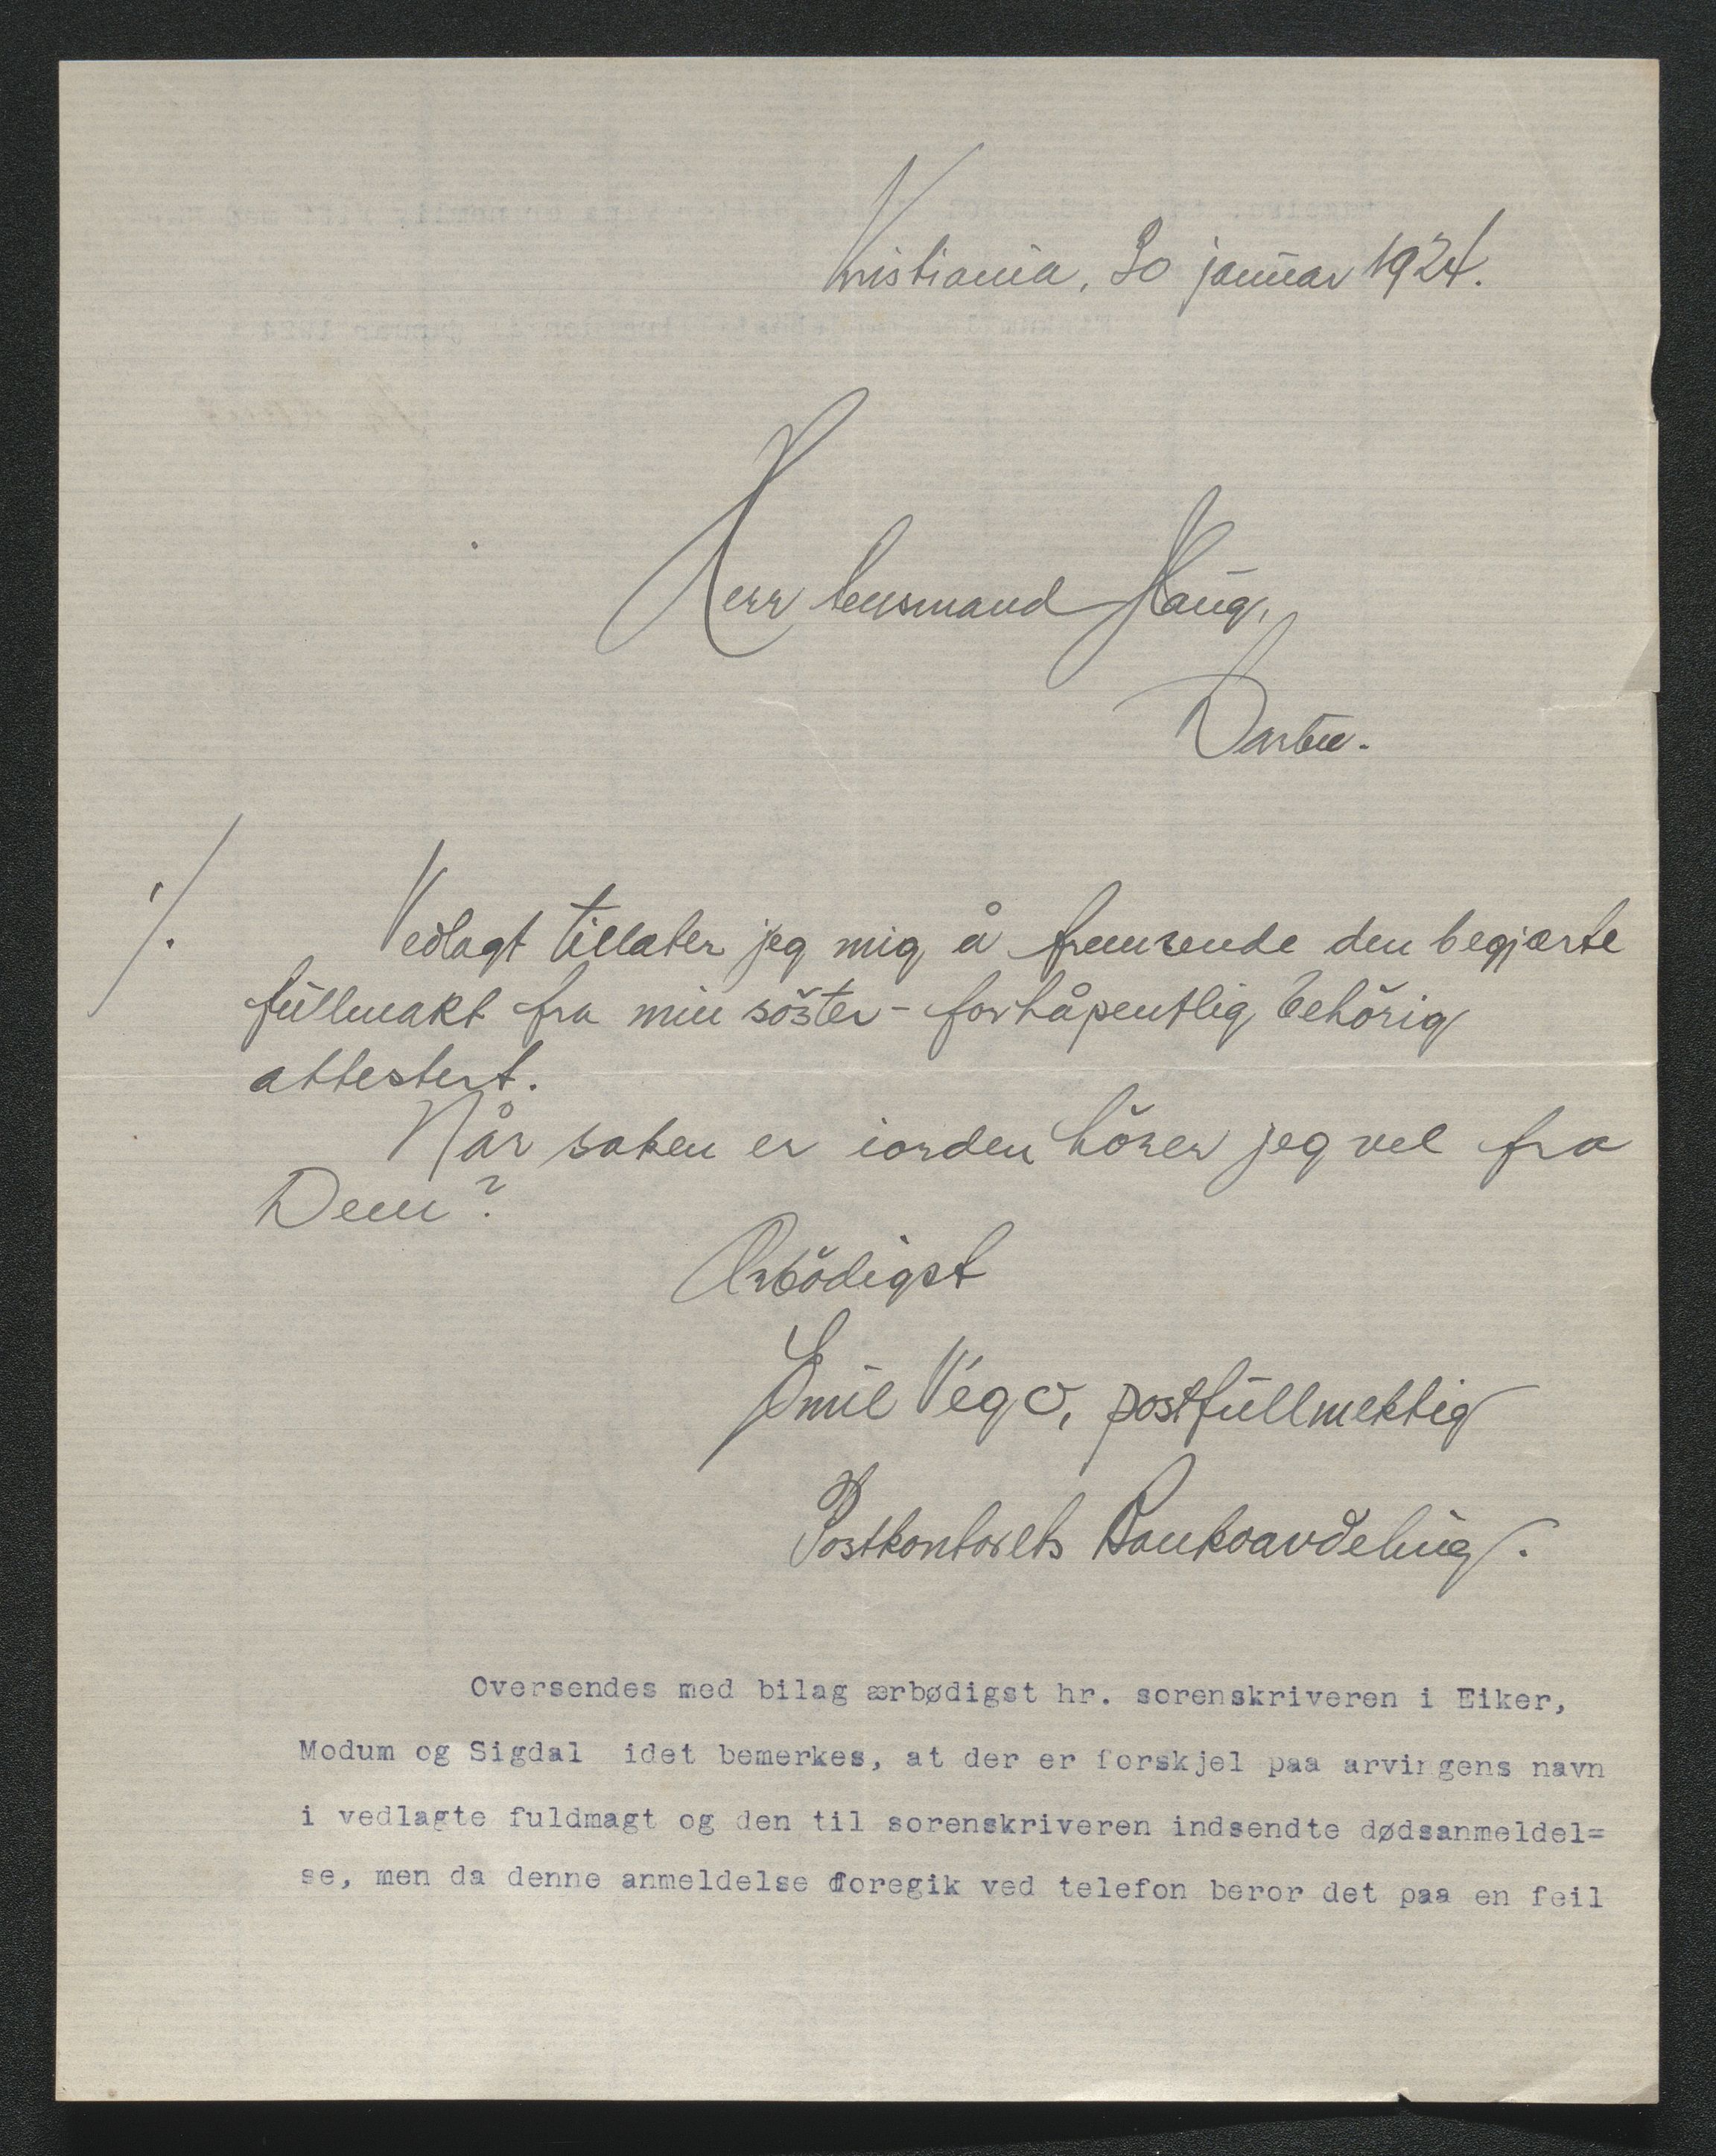 Kristiania, 30 januar 1924.
Herr lensmand Haug,
Darbu.
./. Vedlagt tillater jeg mig å fremsende den begjærte
fullmakt fra min söster - forhåpentlig behörig
attestert.
Når saken er iorden hörer jeg vel fra
Dem?
Ærbödigst
Emil Vego, postfullmektig
Postkontorets Bankoavdeling.
Oversendes med bilag ærbødigst hr. sorenskriveren i Eiker,
Modum og Sigdal idet bemerkes, at der er forskjel paa arvingens navn
i vedlagte fuldmagt og den til sorenskriveren indsendte dødsanmeldel=
se, men da denne anmeldelse foregik ved telefon beror det paa en feil